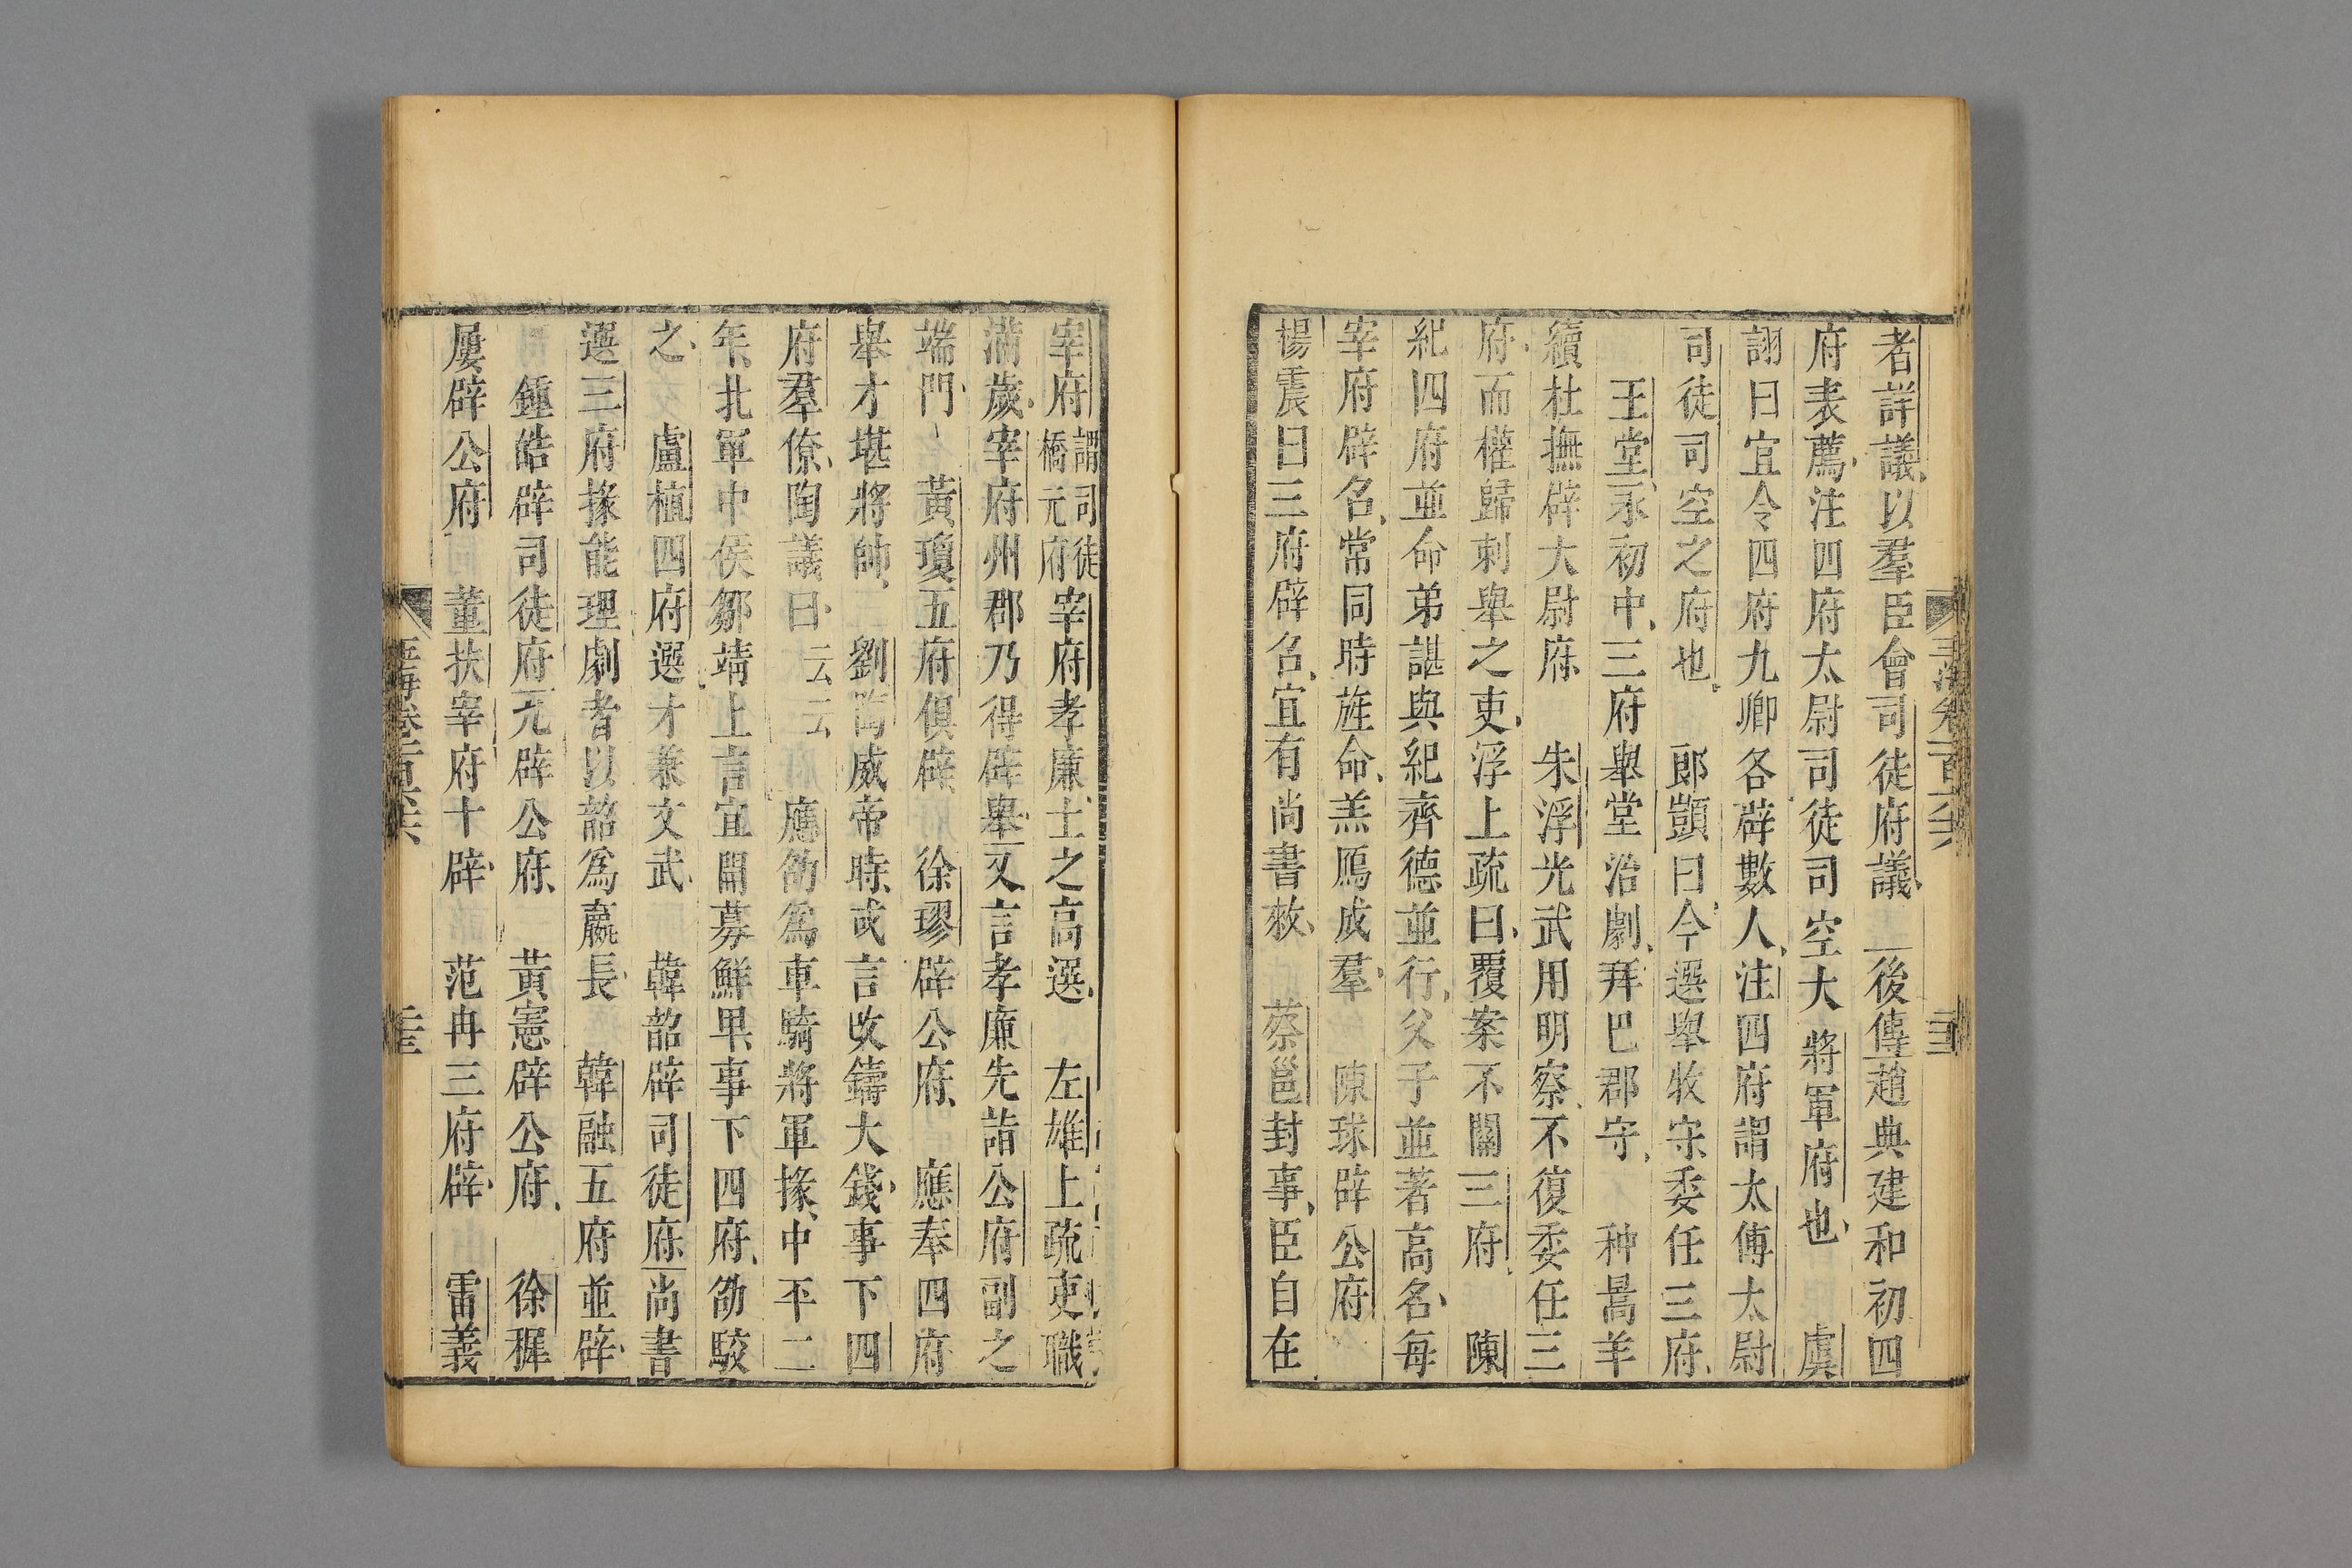 者詳議以羣臣會司徒府議 後傳趙典建和初四
府表薦注四府太尉司徒司空大將軍府也 虞
詡曰宜令四府九卿各辟數人注四府謂太傅太尉
司徒司空之府也 郎顗曰今選舉牧守委任三府
王堂永初中三府舉堂治劇拜巴郡守 种暠羊
續杜撫辟大尉府 朱浮光武用明察不復委任三
府而權歸刺舉之吏浮上疏曰覆案不關三府 陳
紀四府並命弟諶與紀齊德並行父子並著高名每
宰府辟名常同時旌命羔鴈成羣 陳球辟公府
楊震曰三府辟召宜有尚書敕 蔡邕封事臣自在
宰府謂司徒橋元府宰府孝廉士之高選 左雄上疏吏職
滿歲宰府州郡乃得辟舉又言孝廉先詣公府副之
端門 黃瓊五府俱辟 徐璆辟公府 應奉四府
舉才堪將帥 劉陶威帝時或言改鑄大錢事下四
府羣僚陶議曰云云 應劭爲車騎將軍掾中平二
年北軍中侯鄒靖上言宜開募鮮卑事下四府劭駮
之 盧植四府選才兼文武 韓韶辟司徒府尚書
選三府掾能理劇者以韶爲嬴長 韓融五府並辟
鍾皓辟司徒府九辟公府 黃憲辟公府 徐穉
屢辟公府 董扶宰府十辟 范冉三府辟 雷義